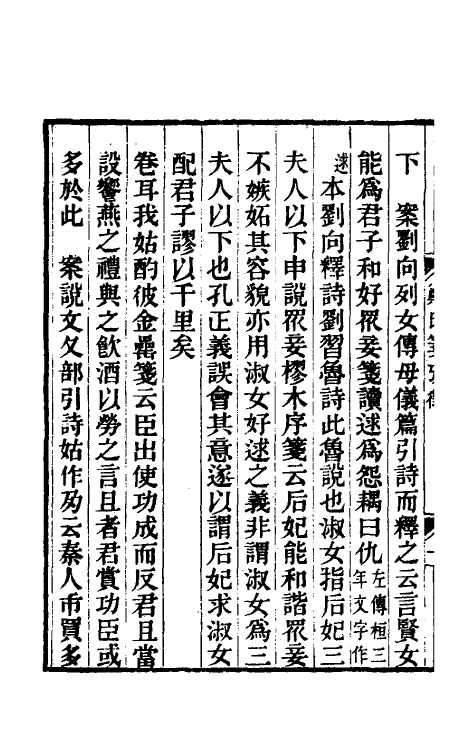 下　案劉向列女傳母儀篇引詩而釋之云言賢女
能爲君子和好眾妾箋讀逑爲怨耦曰仇左傳桓三年文字作
逑本劉向釋詩劉習魯詩此魯說也淑女指后妃三
夫人以下申說眾妾樛木序箋云后妃能和諧眾妾
不嫉妬其容貌亦用淑女好逑之義非謂淑女爲三
夫人以下也孔正義誤會其意遂以謂后妃求淑女
配君子謬以千里矣
卷耳我姑酌彼金罍箋云臣出使功成而反君且當
設饗燕之禮與之飲酒以勞之言且者君賞功臣或
多於此　案說文夂部引詩姑作夃云秦人市買多